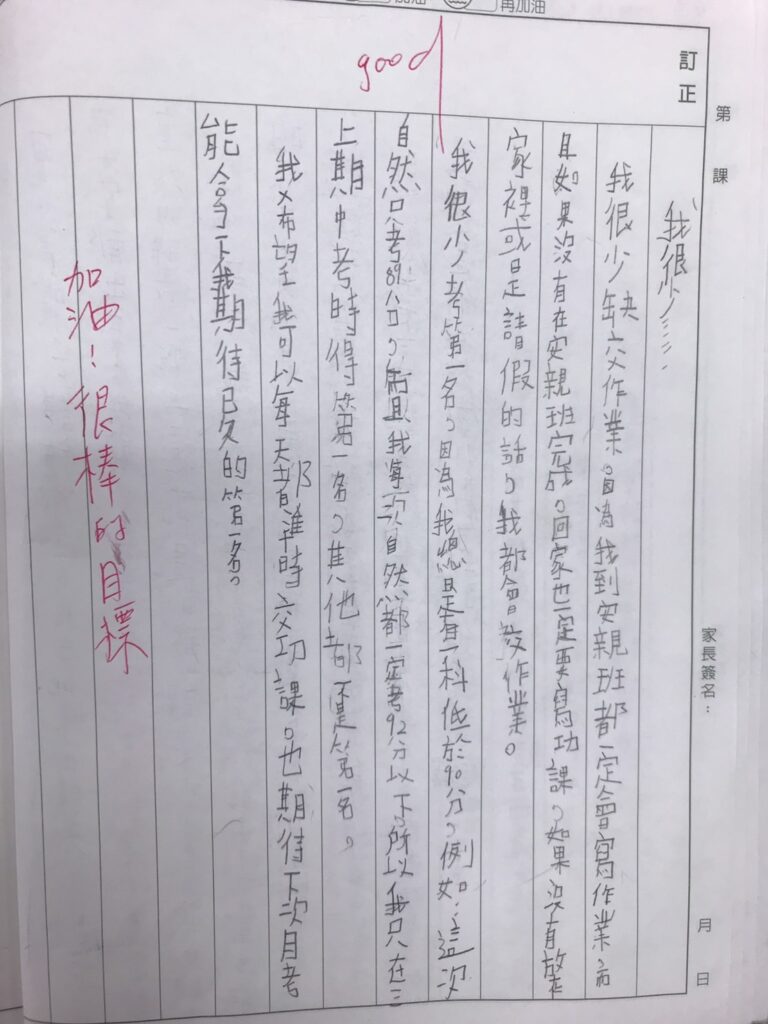 再加油
good
訂正
第 課
家長簽名：
月 日
我很少……
我很少缺交作業。因為我到安親班都一定會寫作業，而
且如果沒有在安親班完成。回家也一定要寫功課。如果沒有放
家裡或是請假的話，我都會交作業。
我很少考第一名。因為我總是有一科低於90分，例如：這次
自然只考89分，而且我每次自然都一定考92分以下，所以我只在三
上期中考時得第一名，其他都不是第一名。
我希望我可以每天都準時交功課。也期待下次月考
能拿下我期待已久的第一名。
加油！很棒的目標